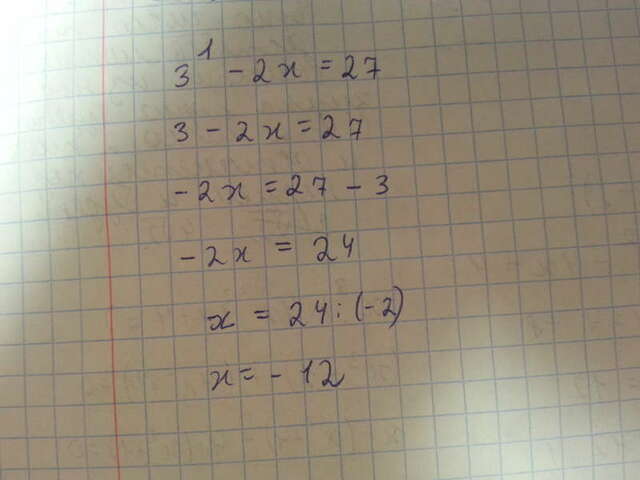 3¹ - 2x = 27
3 - 2x = 27
-2x = 27 - 3
-2x = 24
x = 24 : (-2)
x = - 12